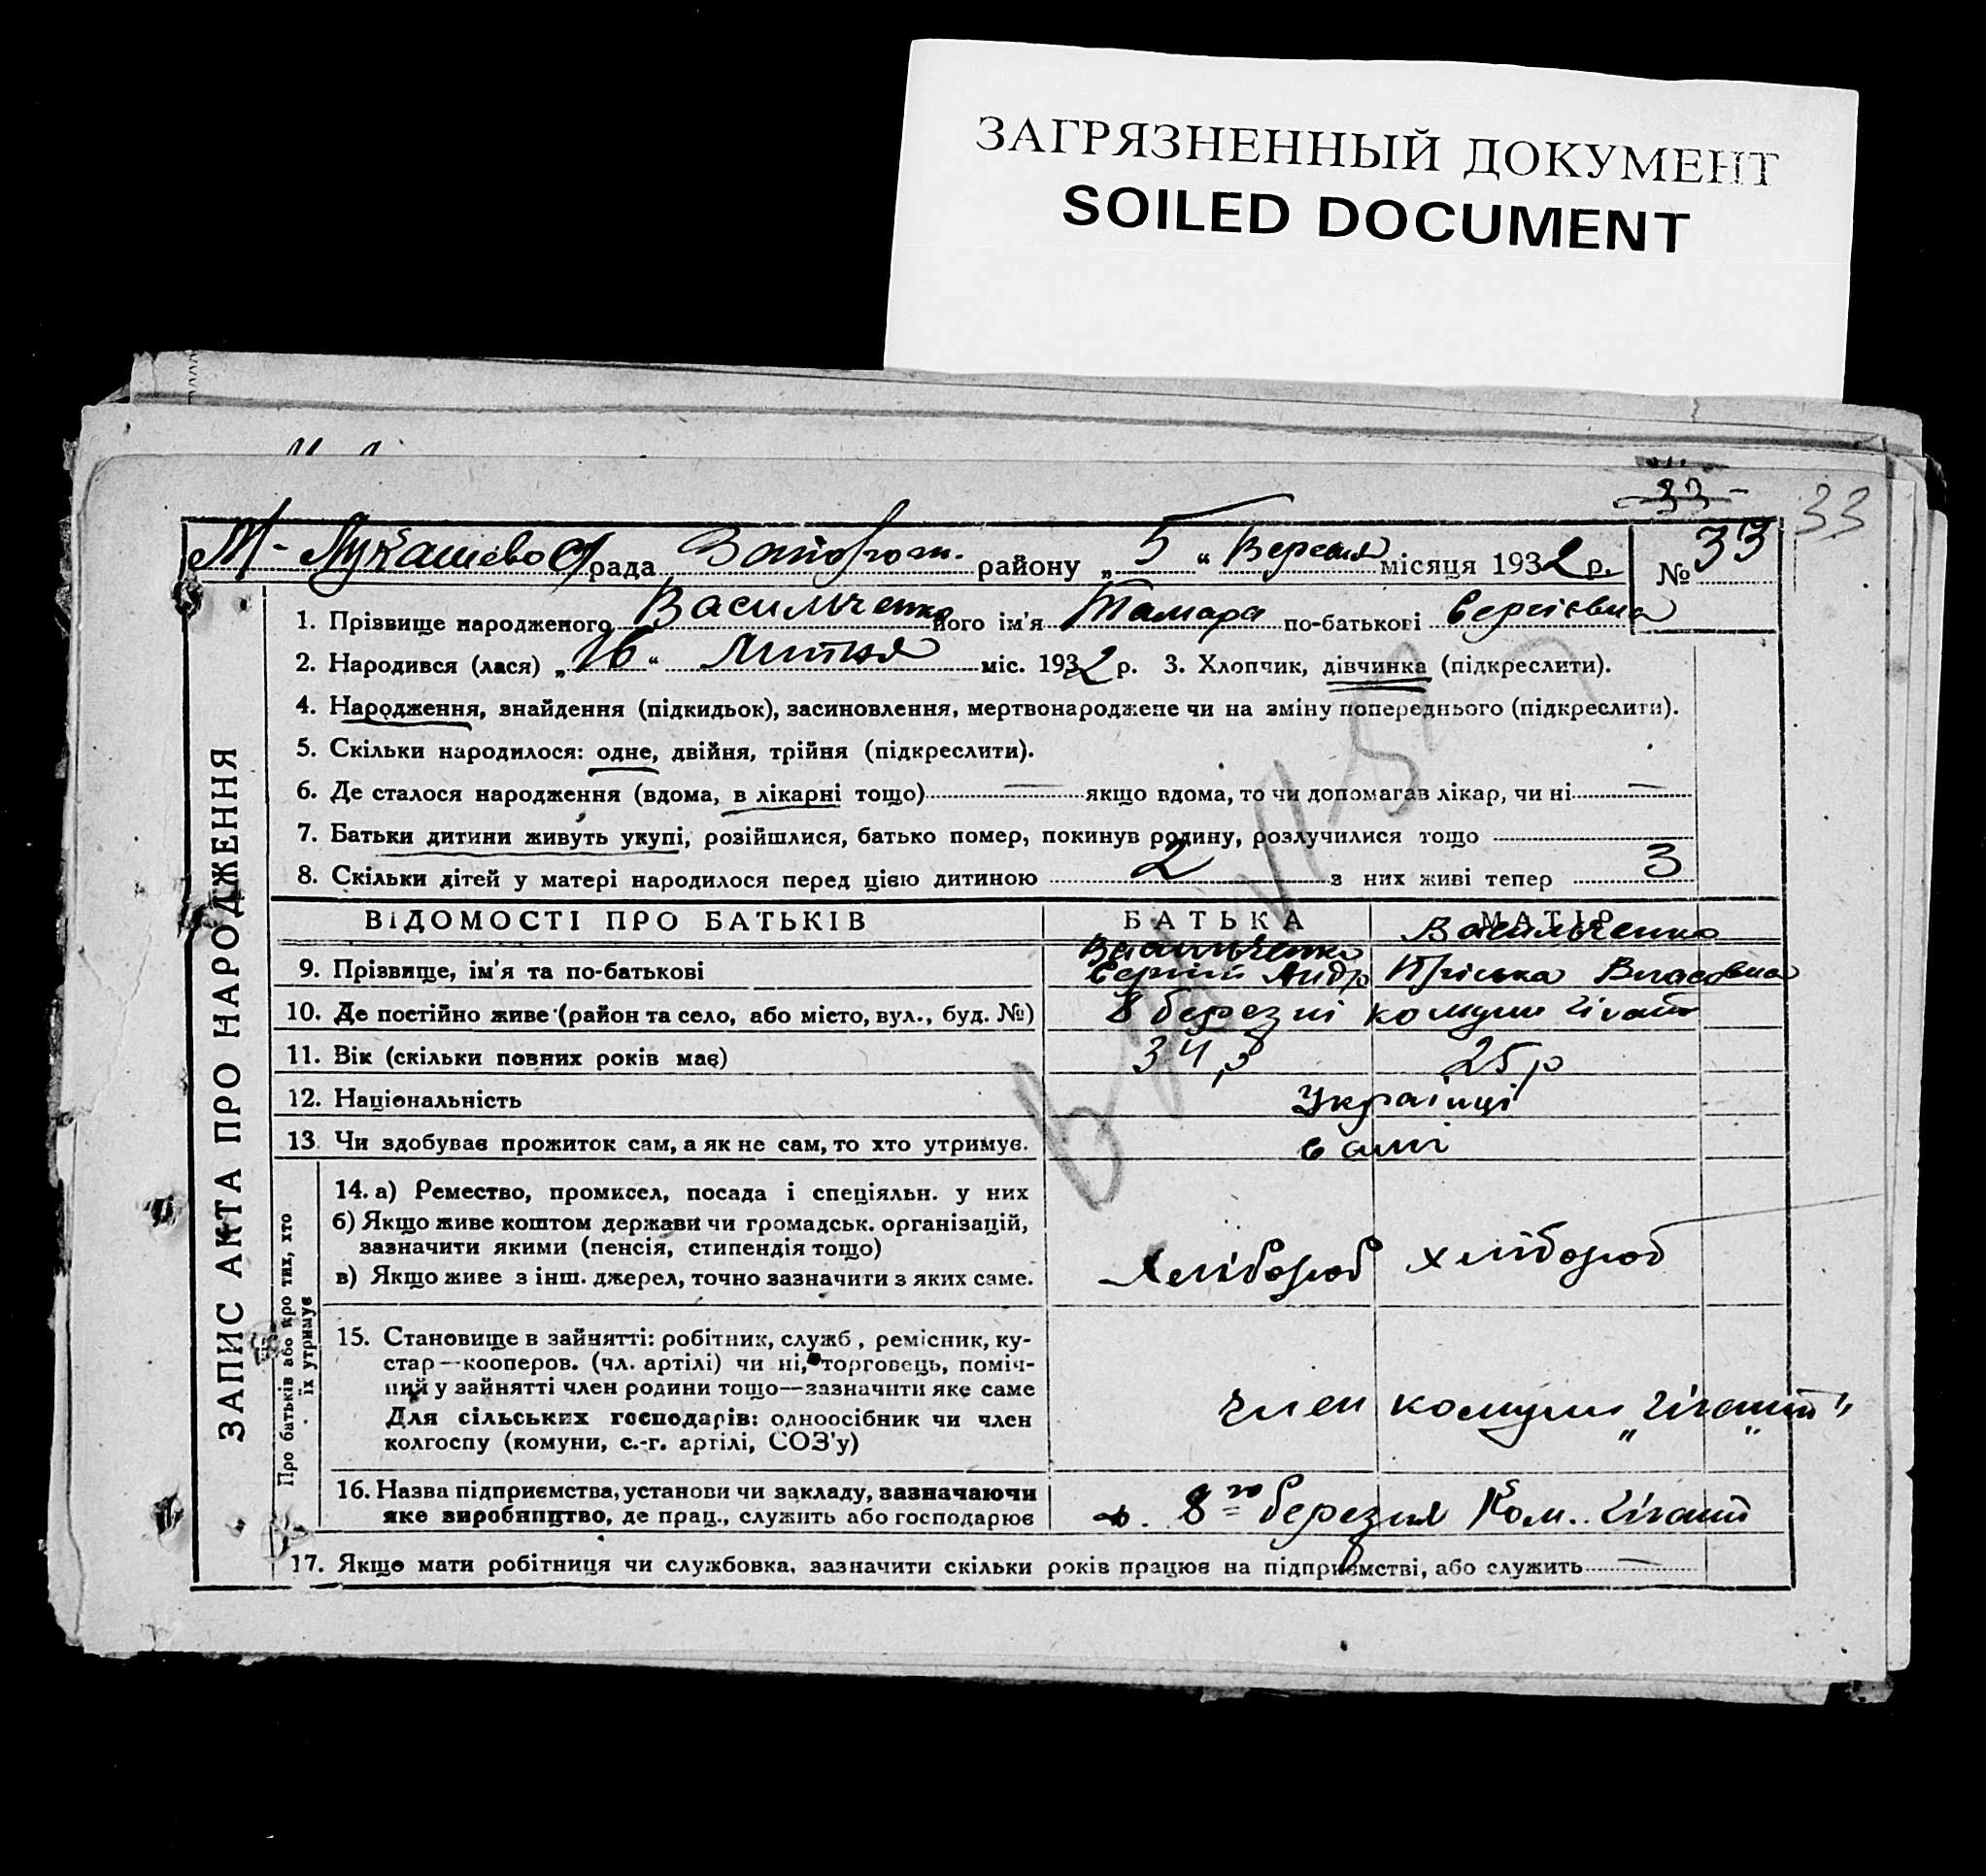 ЗАГРЯЗНЕННЫЙ ДОКУМЕНТ
SOILED DOCUMENT
33
33
М-Лукашево с/рада Запорож. району „5“ Березня місяця 1932 р. № 33
ЗАПИС АКТА ПРО НАРОДЖЕННЯ
1. Прізвище народженого Васильченко його ім'я Тамара по-батькові Сергієвна
2. Народився (лася) „16“ Лютня міс. 1932 р. 3. Хлопчик, дівчинка (підкреслити).
4. Народження, знайдення (підкидьок), засиновлення, мертвонароджене чи на зміну попереднього (підкреслити).
5. Скільки народилося: одне, двійня, трійня (підкреслити).
6. Де сталося народження (вдома, в лікарні тощо) — якщо вдома, то чи допомагав лікар, чи ні —
7. Батьки дитини живуть укупі, розійшлися, батько помер, покинув родину, розлучилися тощо
8. Скільки дітей у матері народилося перед цією дитиною 2 з них живі тепер 3
ВІДОМОСТІ ПРО БАТЬКІВ БАТЬКА МАТІР
9. Прізвище, ім'я та по-батькові Васильченко Сергій Андр Васильченко Пріська Власовна
10. Де постійно живе (район та село, або місто, вул., буд. №) 8 березні комуни Гігант
11. Вік (скільки повних років має) 34 р 25 р
12. Національність Українці
13. Чи здобуває прожиток сам, а як не сам, то хто утримує. самі
Про батьків або про тих, хто їх утримує
14. а) Ремество, промисел, посада і спеціяльн. у них
б) Якщо живе коштом держави чи громадськ. організацій,
зазначити якими (пенсія, стипендія тощо)
в) Якщо живе з інш. джерел, точно зазначити з яких саме.
Хлібороб хлібороб
15. Становище в зайнятті: робітник, служб, ремісник, ку-
стар—кооперов. (чл. артілі) чи ні, торговець, поміч-
ний у зайнятті член родини тощо—зазначити яке саме
Для сільських господарів: одноосібник чи член
колгоспу (комуни, с.-г. артілі, СОЗ'у)
член комуни „Гігант"
16. Назва підприємства, установи чи закладу, зазначаючи
яке виробництво, де прац., служить або господарює
8го березня Ком. Гігант
17. Якщо мати робітниця чи службовка, зазначити скільки років працює на підприємстві, або служить —